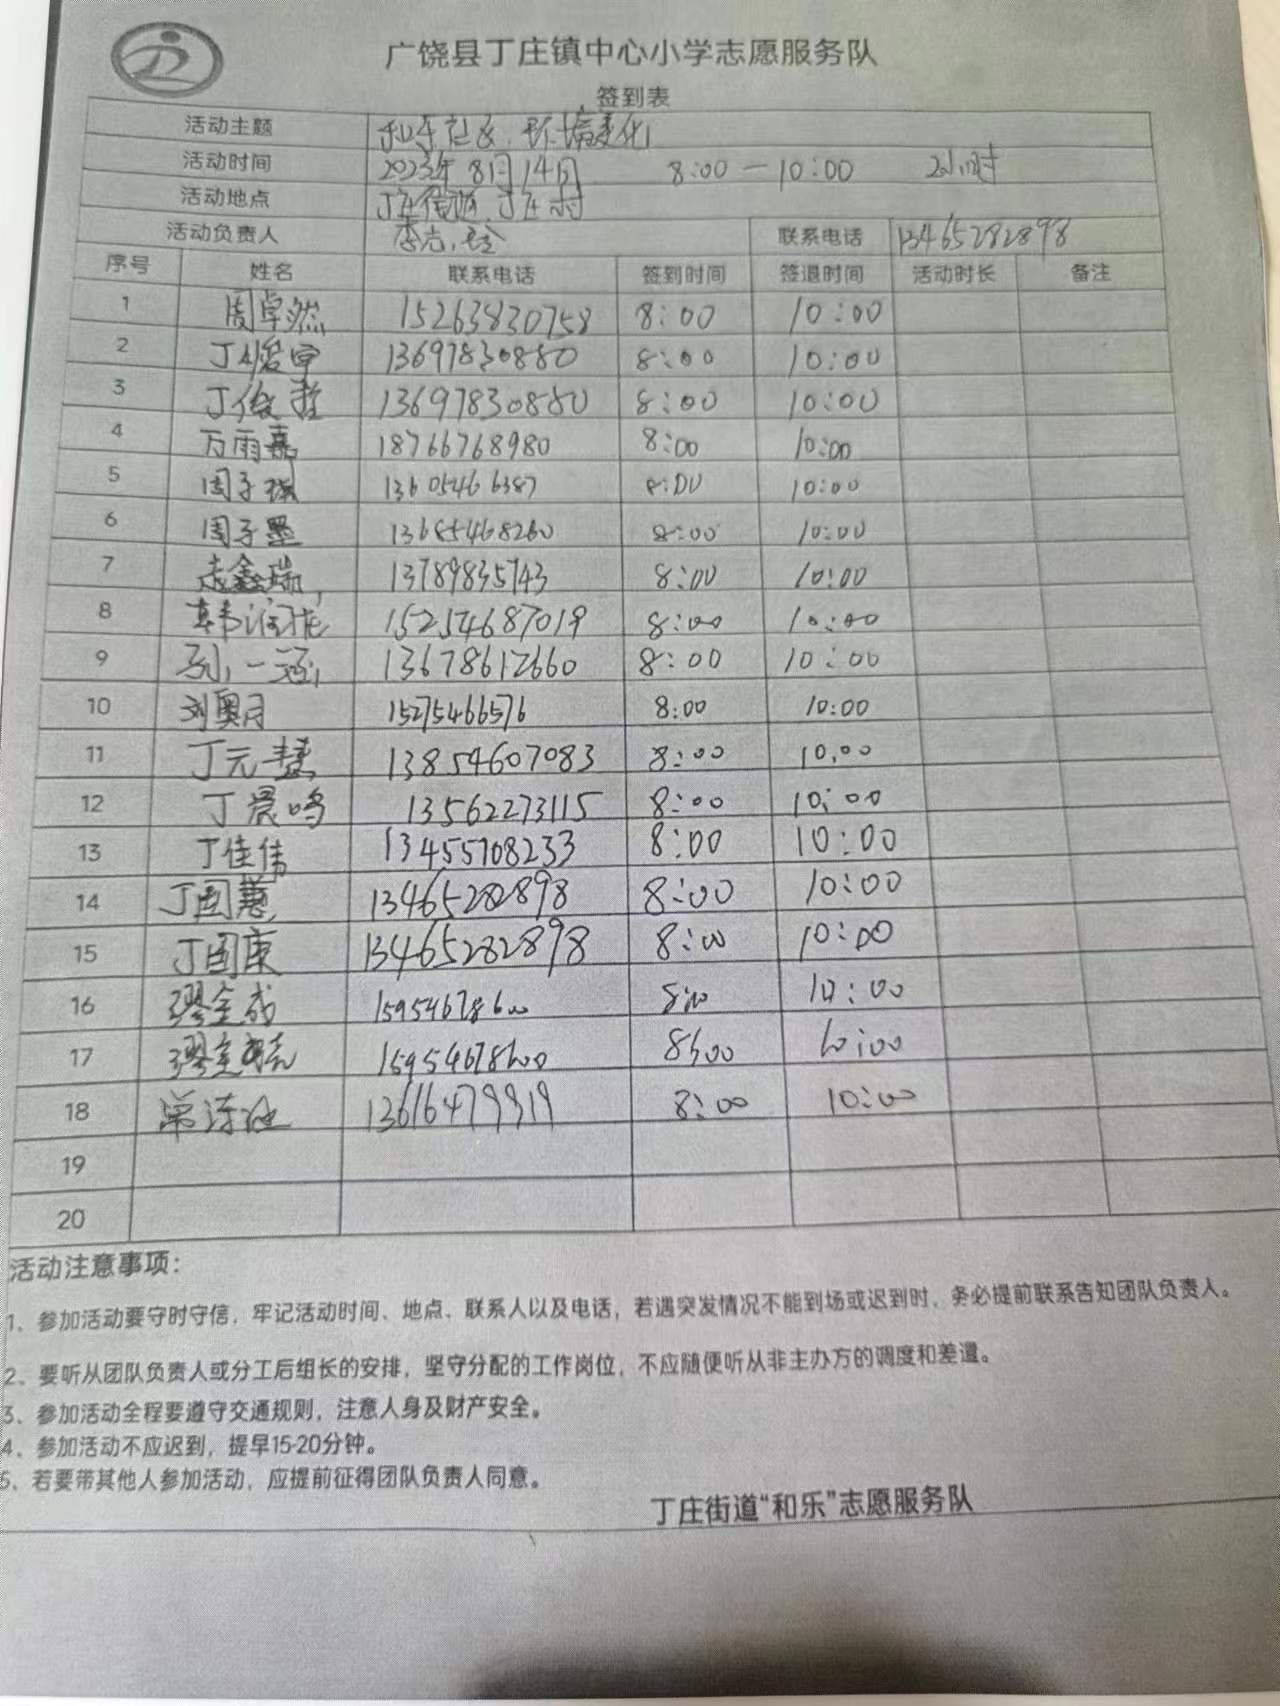 广饶县丁庄镇中心小学志愿服务队
签到表
活动主题 和乐社区,环境美化
活动时间 2023年8月14日 8:00—10:00 2小时
活动地点 丁庄街道,丁庄村
活动负责人 李志 联系电话 13465282898
序号 姓名 联系电话 签到时间 签退时间 活动时长 备注
1 周卓然 15263830758 8:00 10:00
2 丁 13697830880 8:00 10:00
3 丁俊哲 13697830880 8:00 10:00
4 万雨嘉 18766768980 8:00 10:00
5 周子琪 13605466387 8:00 10:00
6 周子墨 13685468260 8:00 10:00
7 孟鑫瑞 13789835743 8:00 10:00
8 韩润 15254687019 8:00 10:00
9 孙一涵 13678612660 8:00 10:00
10 刘奥月 15275466576 8:00 10:00
11 丁元慧 13854607083 8:00 10:00
12 丁晨鸣 13562273115 8:00 10:00
13 丁佳伟 13455708233 8:00 10:00
14 丁国蕙 13465282898 8:00 10:00
15 丁国康 13465282898 8:00 10:00
16 缪金成 15954678600 8:00 10:00
17 缪金毓 15954678600 8:00 10:00
18 13616479919 8:00 10:00
19
20
活动注意事项:
1、参加活动要守时守信,牢记活动时间、地点、联系人以及电话,若遇突发情况不能到场或迟到时,务必提前联系告知团队负责人。
2、要听从团队负责人或分工后组长的安排,坚守分配的工作岗位,不应随便听从非主办方的调度和差遣。
3、参加活动全程要遵守交通规则,注意人身及财产安全。
4、参加活动不应迟到,提早15-20分钟。
5、若要带其他人参加活动,应提前征得团队负责人同意。
丁庄街道“和乐”志愿服务队